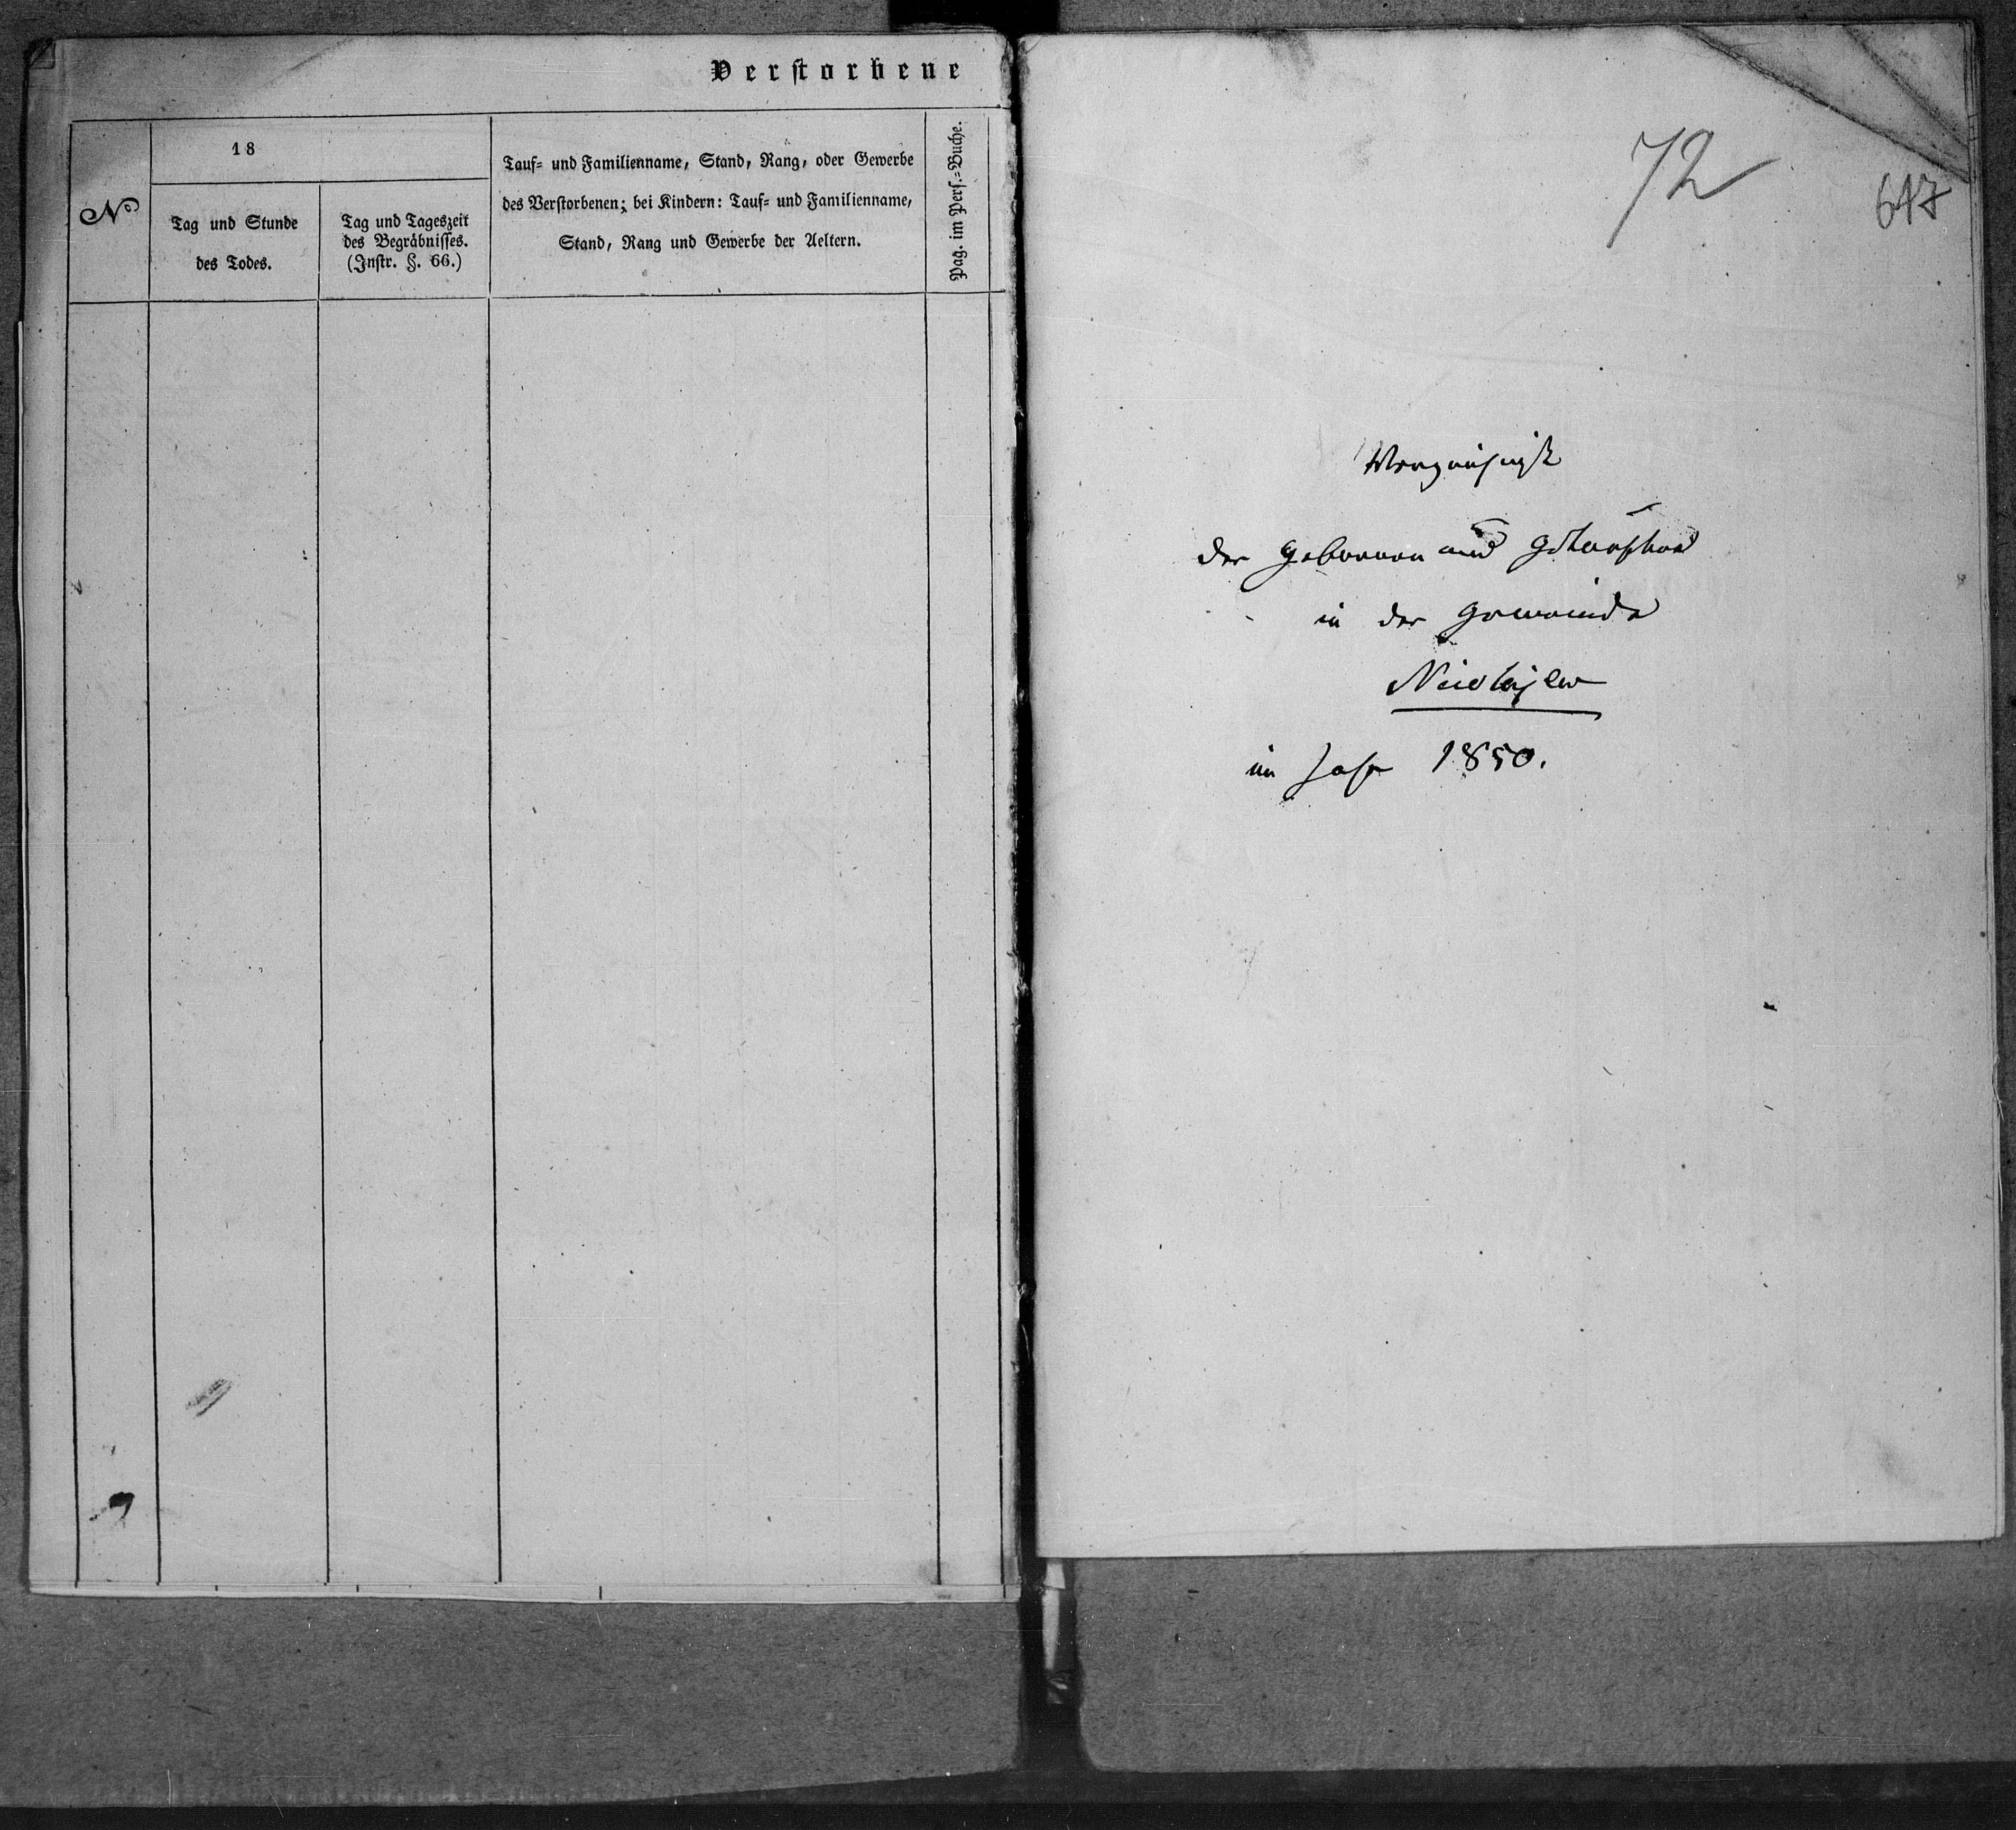 Verstorbene
No
18
Tag und Stunde
des Todes.
Tag und Tageszeit
des Begräbnisses.
(Instr. §. 66.)
Tauf= und Familienname, Stand, Rang, oder Gewerbe
des Verstorbenen; bei Kindern: Tauf= und Familienname,
Stand, Rang und Gewerbe der Aeltern.
Pag. im Pers.=Buche.
72
647
Verzeichniß
der Geborenen und Getauften
in der Gemeinde
Nicolajew
im Jahr 1850.